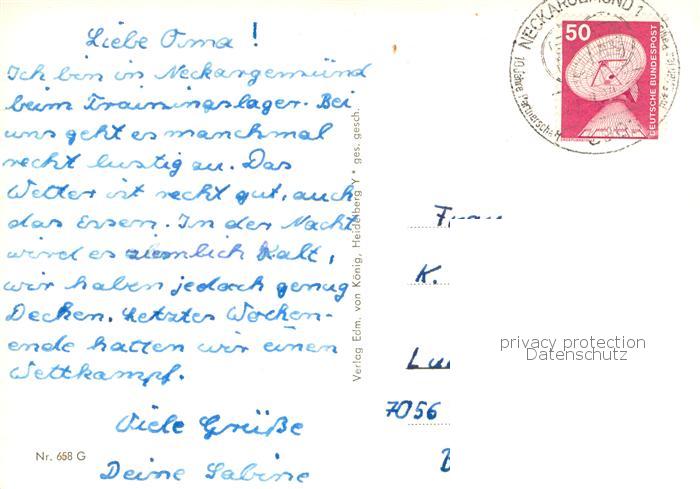 Liebe Oma!
Ich bin in Neckargemünd
beim Trainingslager. Bei
uns geht es manchmal
recht lustig zu. Das
Wetter ist recht gut, auch
das Essen. In der Nacht
wird es ziemlich kalt,
wir haben jedoch genug
Decken. Letztes Wochen-
ende hatten wir einen
Wettkampf.
Viele Grüße
Deine Sabine
Nr. 658 G
Verlag Edm. von König, Heidelberg Y * ges. gesch.
NECKARGEMÜND 1
50
DEUTSCHE BUNDESPOST
Frau
K.
7056
privacy protection
Datenschutz